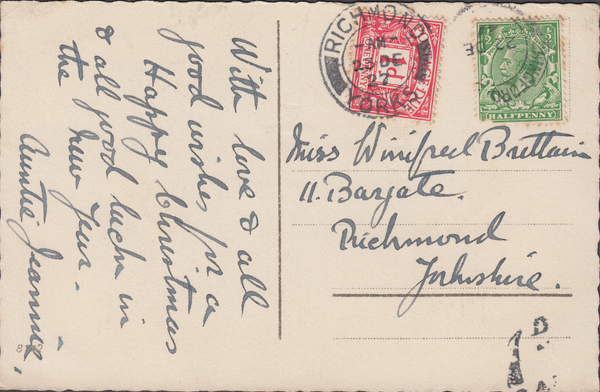 With love & all
good wishes for a
Happy Christmas
& all good luck in
the New Year.
Auntie Jeannie.
RICHMOND
23 DE
27
YORKS
22 DE
HALFPENNY
Miss Winifred Brittain
11. Bargate.
Richmond
Yorkshire.
1D